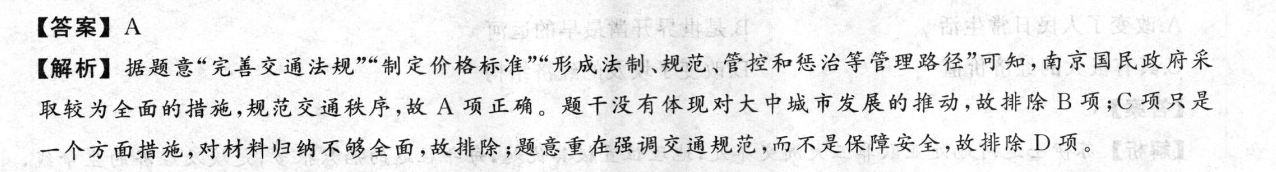 【答案】A
【解析】据题意“完善交通法规”“制定价格标准”“形成法制、规范、管控和惩治等管理路径”可知,南京国民政府采
取较为全面的措施,规范交通秩序,故 A 项正确。题干没有体现对大中城市发展的推动,故排除 B 项;C 项只是
一个方面措施,对材料归纳不够全面,故排除;题意重在强调交通规范,而不是保障安全,故排除 D 项。